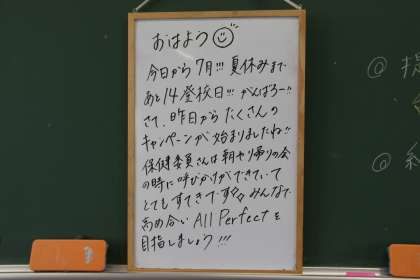 おはよう
今日から7月!!! 夏休みまで
あと14登校日!!! がんばろー!!
さて、昨日からたくさんの
キャンペーンが始まりましたね!!
保健委員さんは朝や帰りの会
の時に呼びかけができていて
とてもすてきです。みんなで
高め合い All Perfect を
目指しましょう!!!
@
@